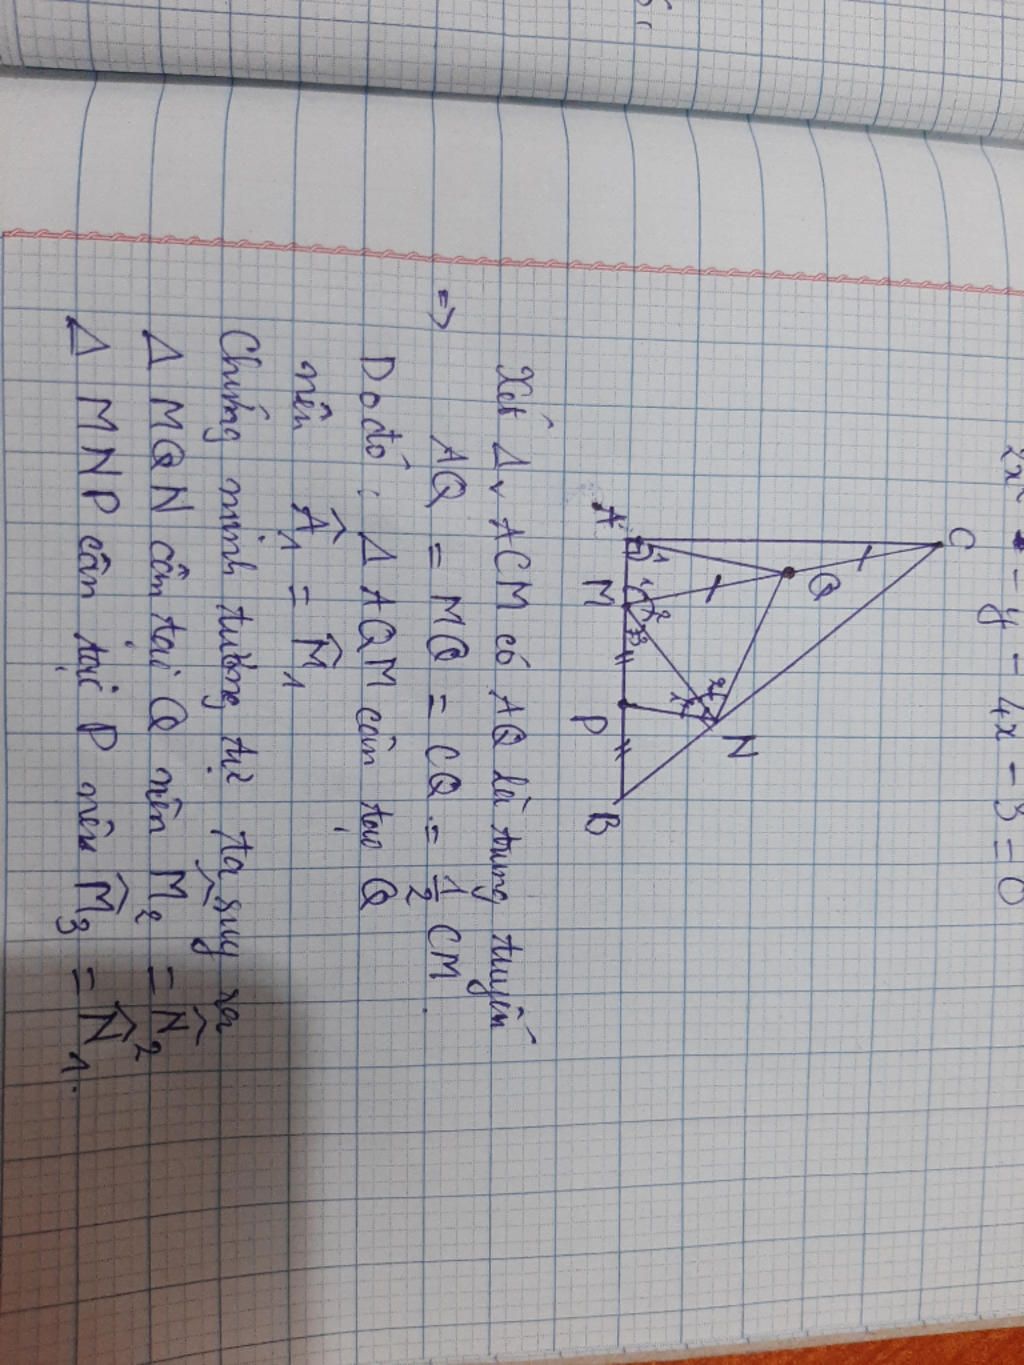 2x² - y - 4x - 3 = 0
C
Q
A
1
M
1
2
3
P
B
N
1
2
Xét Δv ACM có AQ là trung tuyến
=> AQ = MQ = CQ = 1/2 CM.
Do đó: Δ AQM cân tại Q
nên Â1 = M̂1
Chứng minh tương tự ta suy ra
Δ MQN cân tại Q nên M̂2 = N̂2
Δ MNP cân tại P nên M̂3 = N̂1.